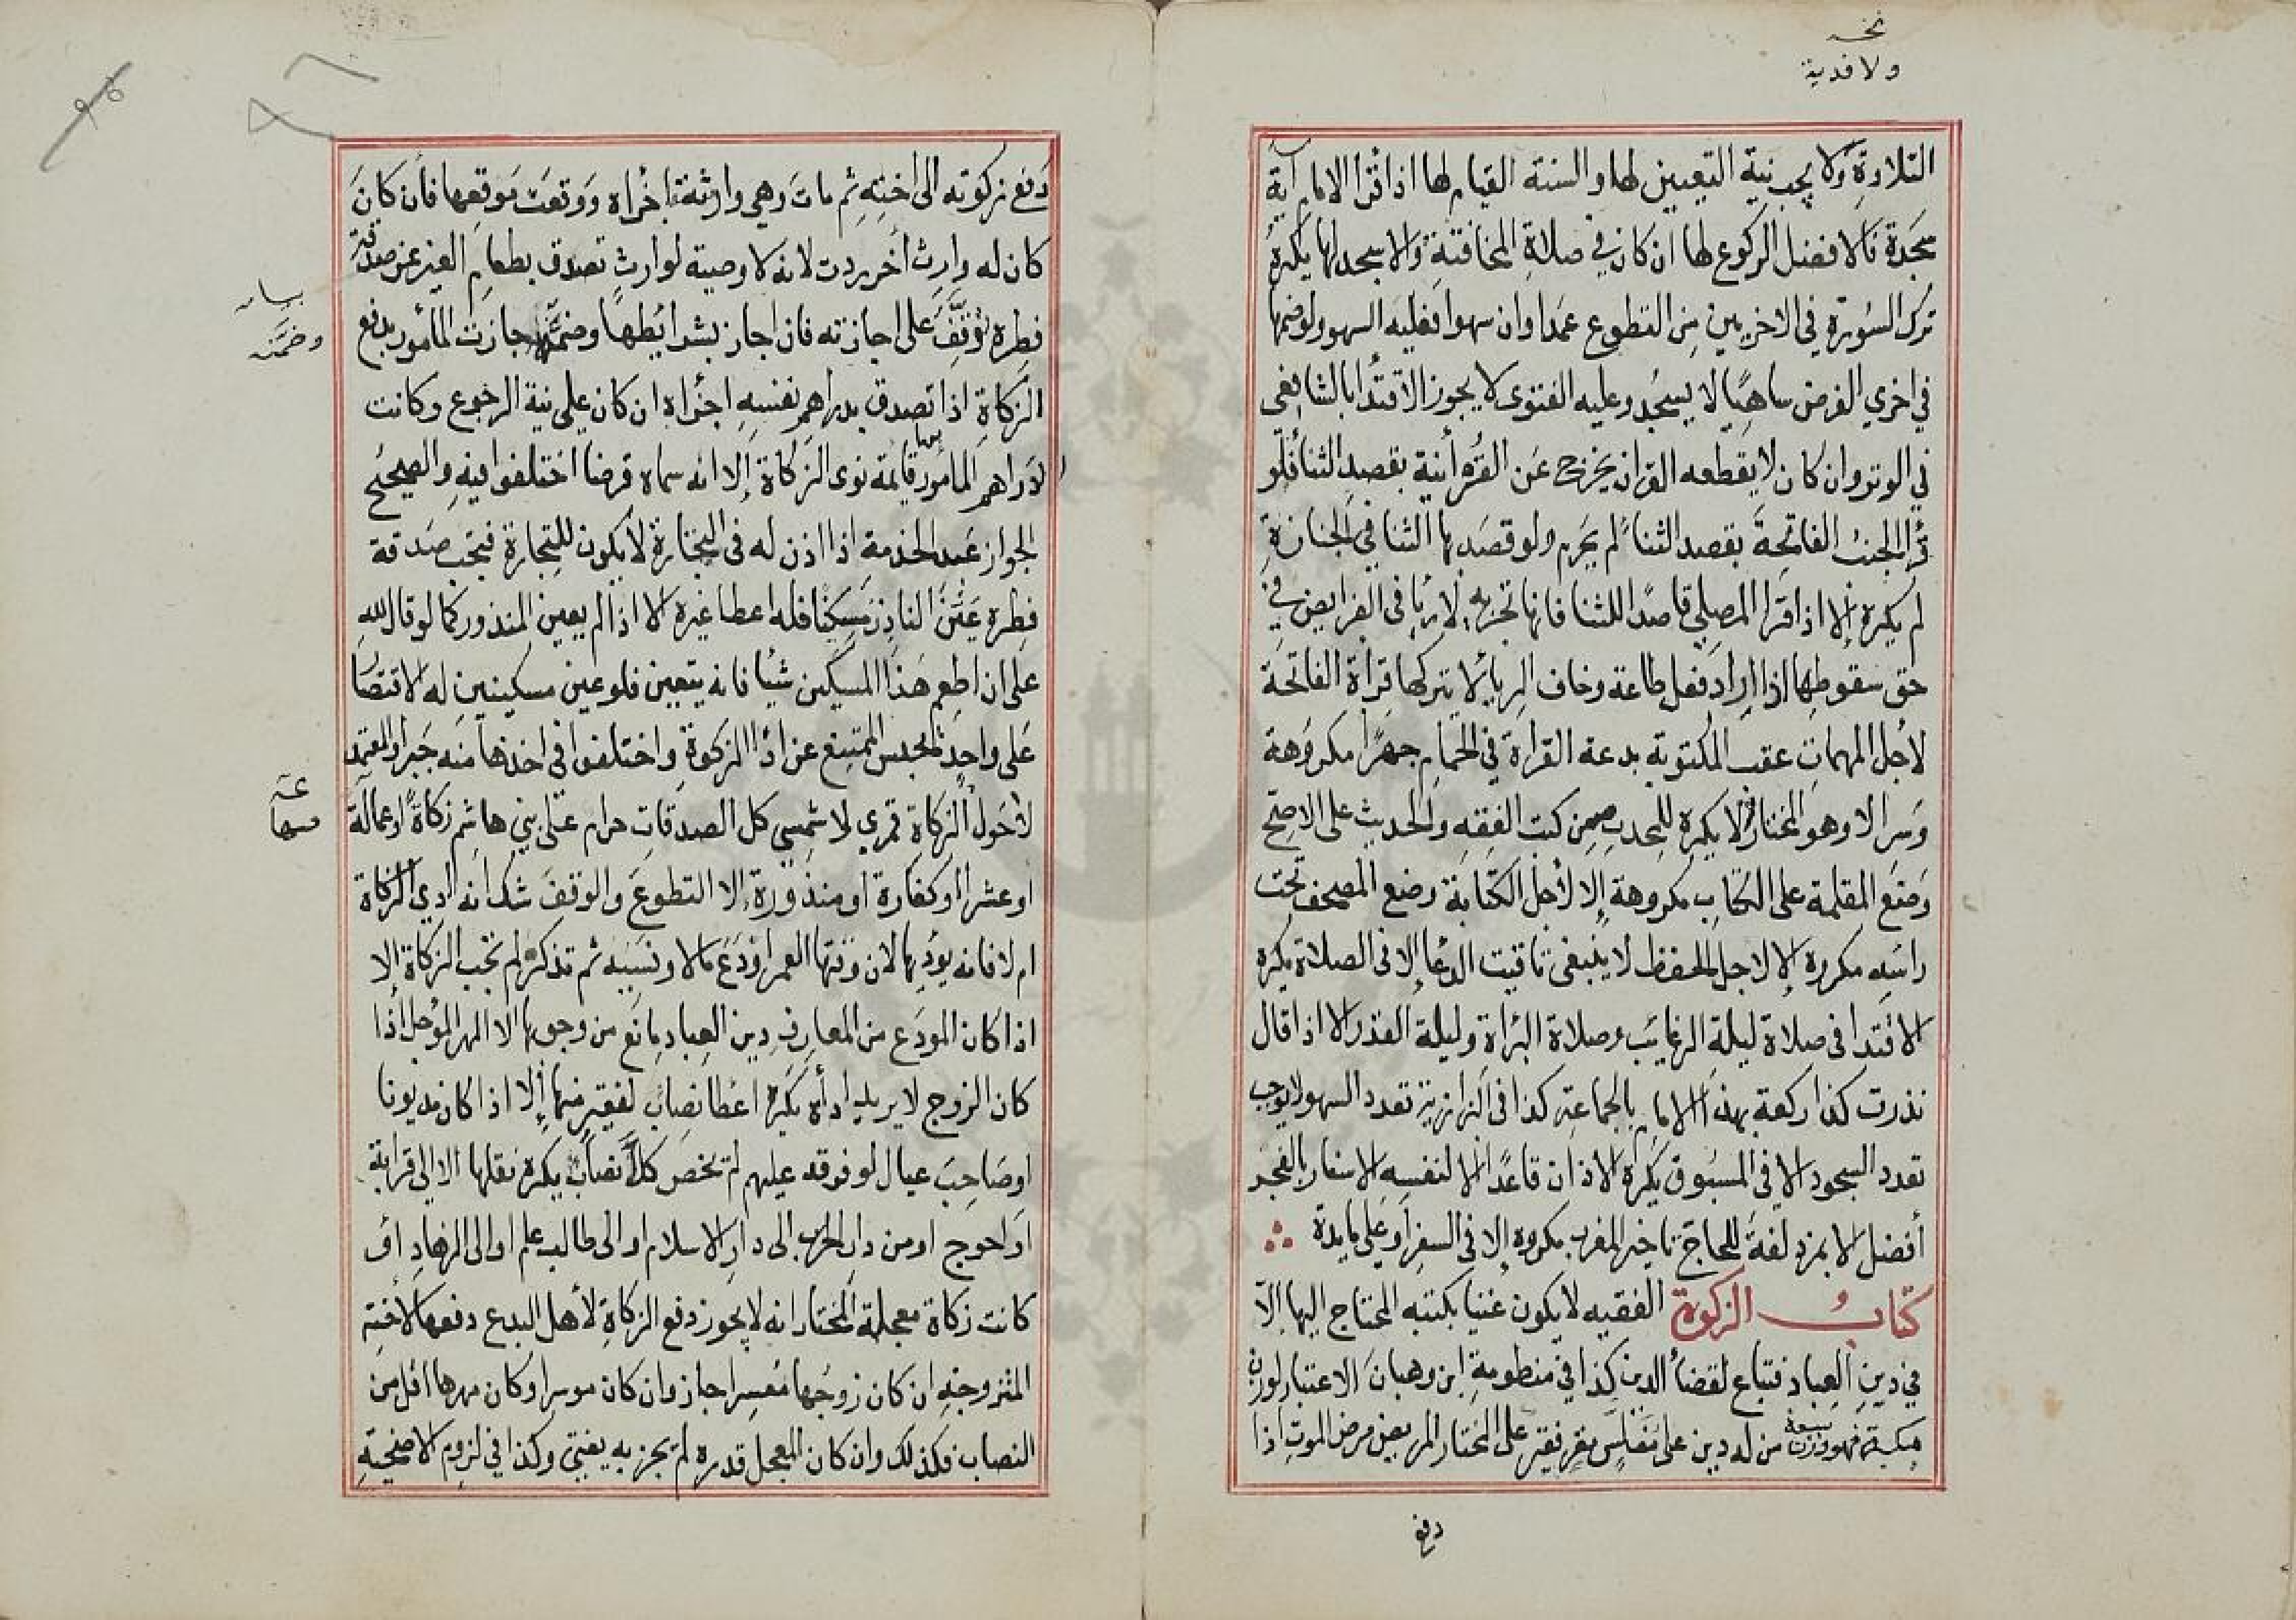 نخـه
ولا فدية
التلاوة ولا يجب نية التعيين لها والسنة القيام لها اذا قرا الامام آية
سجدة فالافضل الركوع لها ان كان في صلاة المخافتة والا سجد لها يكره
ترك السورة في الاخريين من التطوع عمدا وان سهوا فعليه السهو ولو ضمها
في اخري الفرض ساهيا لا يسجد وعليه الفتوى لا يجوز الاقتدا بالشافعي
في الوتر وان كان لا يقطعه القران يخرج عن القرأنية بقصد الثنا فلو
قرا الجنب الفاتحة بقصد الثنا لم يحرم ولو قصد بها الثنا في الجنازة
لم يكره الا اذا قرا المصلي قاصدا للثنا فانها تجزيه لا ريا في الفرايض في
حق سقوطها اذا اراد فعل طاعة وخاف الريا لا يتركها قراة الفاتحة
لاجل المهمات عقب المكتوبة بدعة القراة في الحمام جهرا مكروهة
وسرا لا وهو المختار لا يكره للمحدث مس كتب الفقه والحديث على الاصح
وضع المقلمة على الكتاب مكروهة إلا لأجل الكتابة وضع المصحف تحت
راسه مكروه إلا لاجل الحفظ لا ينبغي تاقيت الدعا إلا في الصلاة يكره
الاقتدا في صلاة ليلة الرغايب وصلاة البراة وليلة القدر الا اذا قال
نذرت كذا ركعة بهذا الامام بالجماعة كذا في البزازية تعدد السهو لا يوجب
تعدد السجود الا في المسبوق يكره الاذان قاعدا الا لنفسه الاسفار بالفجر
أفضل الا بمزدلفة للحاج تاخير المغرب مكروه إلا في السفر او على مايدة
كتاب الزكوة الفقيه لا يكون غنيا بكتبه المحتاج اليها إلا
في دين العباد فتباع لقضأ الدين كذا في منظومة ابن وهبان الاعتبار لوزن
مكة فهو وزن سبعة من له دين على مفلس مقر فقير على المختار المريض مرض الموت اذا
دفع
دفع زكوته الى اخته ثم مات وهي وارثة اجزاه ووقعت موقعها فان كان
كان له وارث آخر ردت لانه لا وصية لوارث تصدق بطعام الغير عن صدقة
فطره توقف على اجازته فان اجاز بشرايطها وضمنها جازت المأمور بدفع
الزكاة اذا تصدق بدراهم نفسه اجزاه ان كان على نية الرجوع وكانت
دراهم المامور بها قايمة نوى الزكاة إلا انه سماه قرضا اختلفوا فيه والصحيح
الجواز عبد الخدمة اذا اذن له في التجارة لا يكون للتجارة فتجب صدقة
فطره عين الناذر مسكينا فله اعطا غيره الا اذا لم يعين المنذور كما لو قال لله
على ان اطعم هذا المسكين شيا فانه يتعين فلو عين مسكينين له الاقتصار
على واحد يحبس الممتنع عن ادا الزكوة واختلفوا في اخذها منه جبرا والمعتمد
لا حول الزكاة قمري لا شمسي كل الصدقات حرام على بني هاشم زكاة او عمالة
او عشرا او كفارة او منذورة إلا التطوع والوقف شك انه ادي الزكاة
ام لا فانه يؤديها لان وقتها العمر اودع مالا ونسيه ثم تذكره لم تجب الزكاة إلا
اذا كان المودع من المعارف دين العباد مانع من وجوبها الا المهر المؤجل اذا
كان الزوج لا يريد اداه يكره اعطا نصاب لفقير منها إلا اذا كان مديونا
او صاحب عيال لو فرقه عليهم لم يخص كلا نصاب يكره نقلها الا الى قرابة
او احوج او من دار الحرب الى دار الاسلام او الى طالب علم او الى الزهاد او
كانت زكاة معجلة المختار انه لا يجوز دفع الزكاة لأهل البدع دفعها لاخته
المتزوجة ان كان زوجها معسرا جاز وان كان موسرا وكان مهرها اقل من
النصاب فكذلك وان كان المعجل قدره لم يجز به يفتى وكذا في لزوم الاضحية
وضمنه